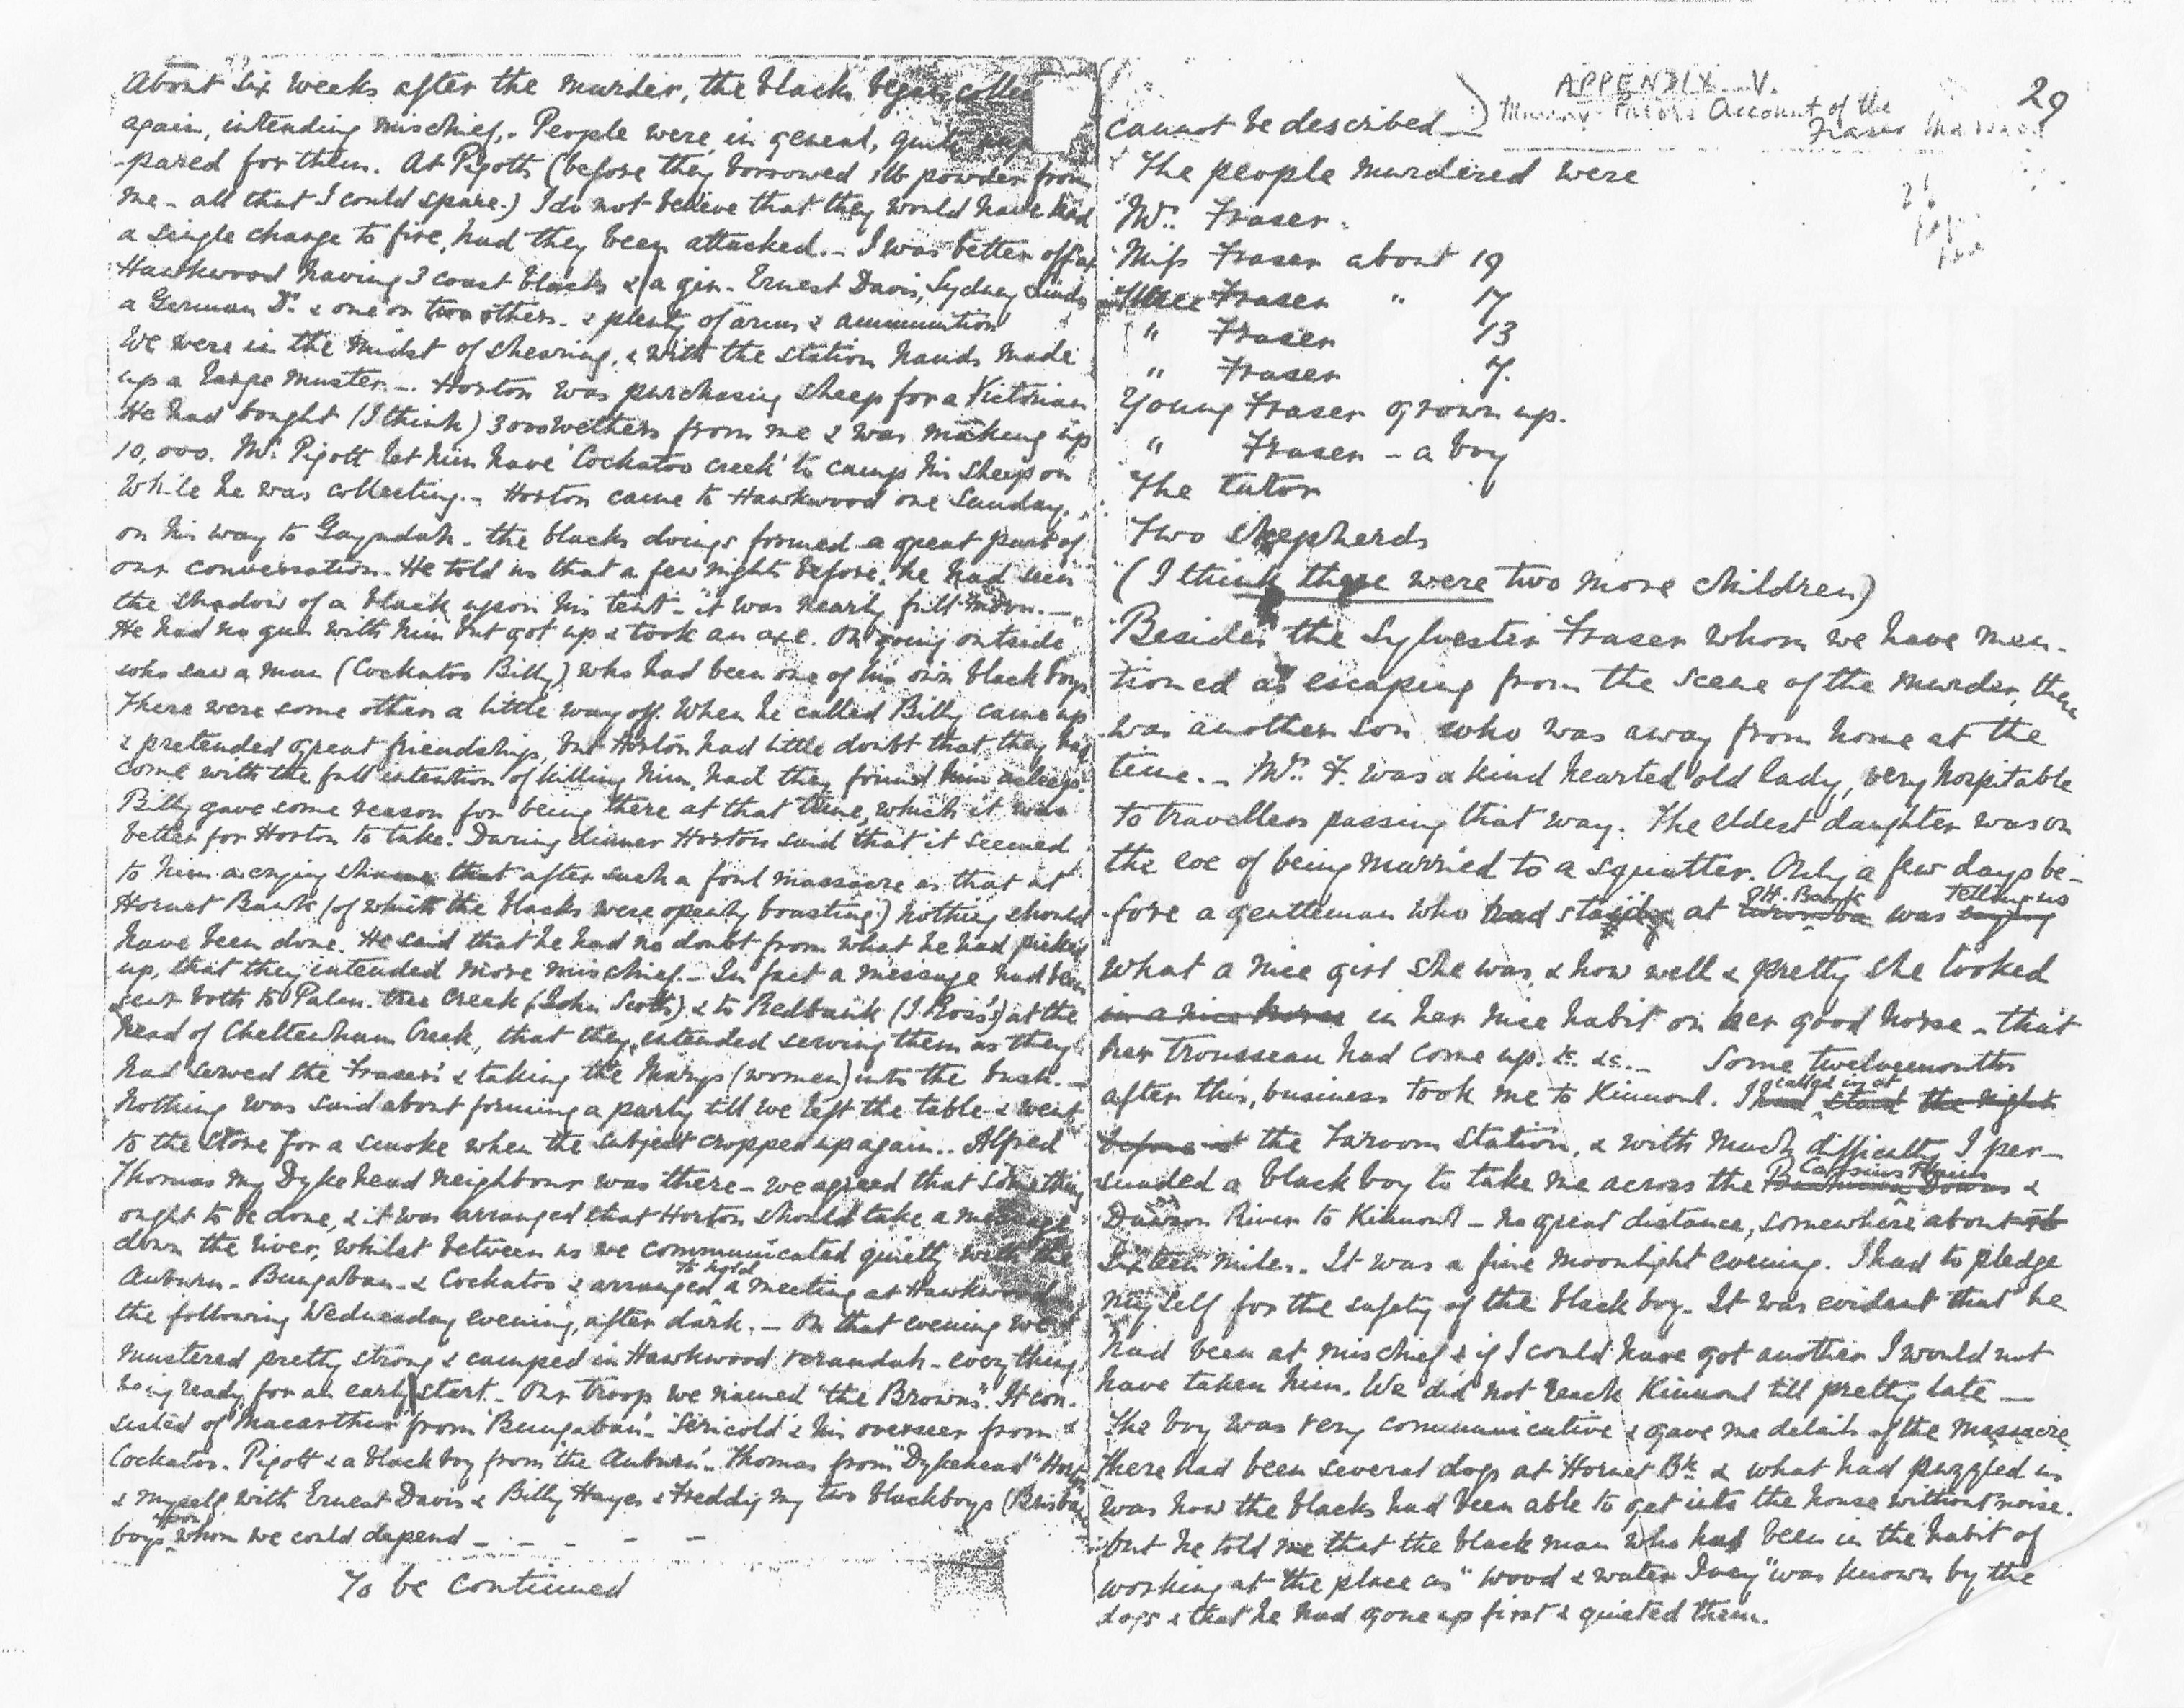 About six weeks after the murder, the blacks began collec
again, intending mischief. - People were, in general, quite
-pared for them. At Pigotts (before they borrowed 1lb powder from
me - all that I could spare.) I do not believe that they would have had
a single charge to fire, had they been attacked. - I was better off at
Hawkwood having 3 coast blacks & a gin - Ernest Davis, Sydney
a German Dr. & one or two others - & plenty of arms & ammunition
We were in the midst of shearing, & with the station hands made
up a large muster. - Horton was purchasing sheep for a Victorian
He had bought (I think) 3000 wethers from me & was making up
10,000. Mr. Pigott let him have 'Cockatoo creek' to camp his sheep on
while he was collecting. - Horton came to Hawkwood one Sunday,
on his way to Gayndah - the blacks doings formed a great part of
our conversation. He told us that a few nights before, he had seen
the shadow of a black upon his tent - it was nearly full moon. -
He had no gun with him but got up & took an axe. On going outside
who saw a man (Cockatoo Billy) who had been one of his own black boys
There were some others a little way off. When he called Billy came up
& pretended great friendship, but Horton had little doubt that they had
come with the full intention of killing him, had they found him asleep.
Billy gave some reason for being there at that time, which it was
better for Horton to take. During dinner Horton said that it seemed
to him a crying shame that after such a foul massacre as that at
Hornet Bank (of which the blacks were openly boasting) nothing should
have been done. He said that he had no doubt from what he had picked
up, that they intended more mischief. - In fact a message had been
sent both to Palm-tree Creek (John Scott's) & to Redbank (J. Ross's) at the
head of Cheltenham Creek, that they intended serving them as they
had served the Frasers & taking the Marys (women) into the bush. -
Nothing was said about forming a party till we left the table & went
to the store for a smoke when the subject cropped up again.. Alfred
Thomas my Dykehead neighbour was there - we agreed that something
ought to be done, & it was arranged that Horton should take a message
down the river, whilst between us we communicated quietly with the
Auburn - Bungaban - & Cockatoo & arranged to hold a meeting at Hawkwood
the following Wednesday evening, after dark. - On that evening we
mustered pretty strong & camped in Hawkwood verandah - everything
being ready for an early start. - Our troop we named "the Browns". It con-
sisted of 'Macarthur' from 'Bungaban' - 'Serisold' & his overseer from
Cockatoo. Pigott & a black boy from 'the Auburn' - Thomas from "Dykehead"
& myself with Ernest Davis & Billy Hayes & Freddy my two blackboys (Brisbane
boys upon whom we could depend - - - - -
To be continued
APPENDIX V.
29
Murray-Prior's Account of the
Fraser
cannot be described -
The people murdered were
Mrs. Fraser.
Miss Fraser about 19
Fraser " 17
" Fraser 13
" Fraser 7.
Young Fraser grown up.
" Fraser - a boy
The tutor
Two shepherds
(I think there were two more children)
Besides the Sylvester Fraser whom we have men-
tioned as escaping from the scene of the murder, there
was another son who was away from home at the
time. - Mrs. F. was a kind hearted old lady, very hospitable
to travellers passing that way. The eldest daughter was on
the eve of being married to a squatter. Only a few days be-
-fore a gentleman who had at H. Bank was telling us
what a nice girl she was, & how well & pretty she looked
in a nice horse in her nice habit on her good horse - that
her trousseau had come up. &c. &c. - Some twelvemonths
after this, business took me to Kinnoul. I had called in at staid the night
before at the Taroom station, & with much difficulty I per-
suaded a black boy to take me across the &
Dawson River to Kinnoul - no great distance, somewhere about
sixteen miles. It was a fine moonlight evening. I had to pledge
myself for the safety of the black boy. It was evident that he
had been at mischief & if I could have got another I would not
have taken him. We did not reach Kinnoul till pretty late -
The boy was very communicative & gave me details of the massacre
There had been several dogs at Hornet Bk. & what had puzzled us
was how the blacks had been able to get into the house without noise.
but he told me that the black man who had been in the habit of
working at the place as "wood & water Joey" was known by the
dogs & that he had gone up first & quieted them.